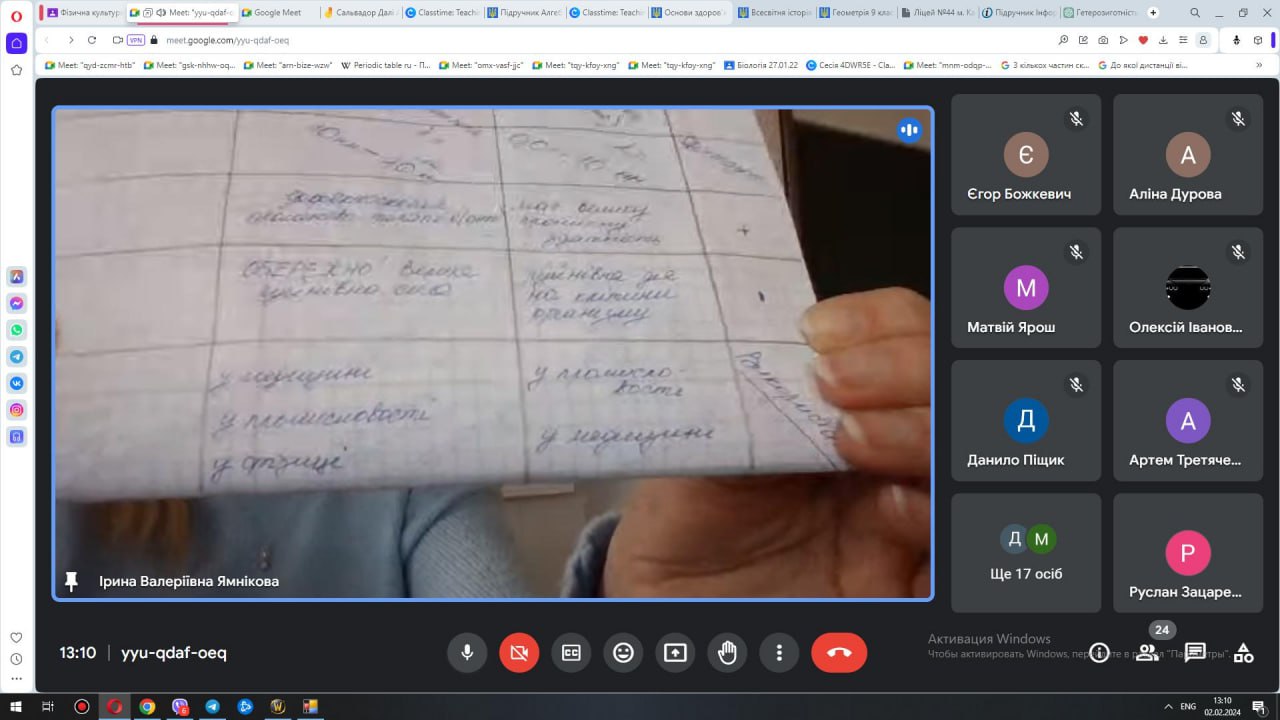 Фізична культур
Meet: "yyu-qdaf-o
Google Meet
Сальвадор Далі
Classtime: Teache
Підручник Алгеб
Classtime: Teache
Основи здоров'
Всесвітня історія
Геометрія 9 клас
Ліцей №444 м. К
Підручник Інфор
Гетерозиготність
VPN
meet.google.com/yyu-qdaf-oeq
Meet: "qyd-zcmr-htb"
Meet: "gsk-nhhw-oq...
Meet: "arn-bize-wzw"
Periodic table ru - П...
Meet: "omx-vasf-jjc"
Meet: "tqy-kfoy-xng"
Meet: "tqy-kfoy-xng"
Біологія 27.01.22
Сесія 4DWR5E - Cla...
Meet: "mnm-odqp-...
З кількох частин ск...
До якої дистанції ві...
має велику
проникну
здатність
+
ОБЕРЕЖНО! Велика
руйнівна сила
руйнівна дія
на клітини
організму
у медицині
у промисловості
у фізиці
у промисло-
вості
у медицині
Ірина Валеріївна Ямнікова
Є
Єгор Божкевич
А
Аліна Дурова
М
Матвій Ярош
Олексій Іванов...
Д
Данило Піщик
А
Артем Третяче...
Д М
Ще 17 осіб
Р
Руслан Зацаре...
13:10 | yyu-qdaf-oeq
24
Активация Windows
Чтобы активировать Windows, перейдите в раздел "Параметры".
ENG
13:10
02.02.2024